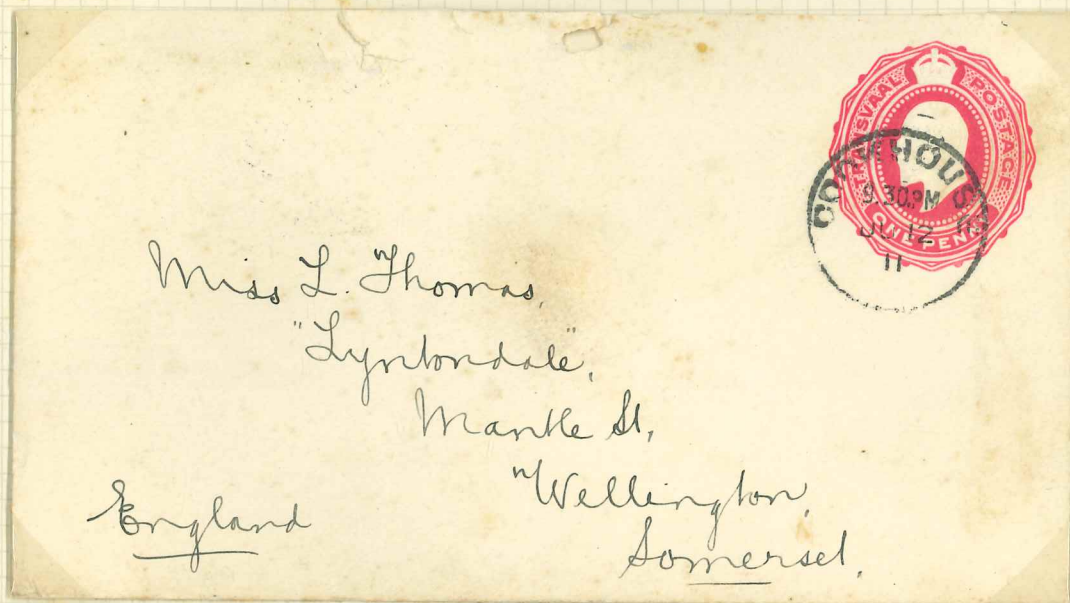 TRANSVAAL POSTAGE
ONE PENNY
COOKHOUSE
9.30PM
JL 12
11
Miss L. Thomas,
"Lyntondale",
Mantle St,
Wellington,
Somerset,
England